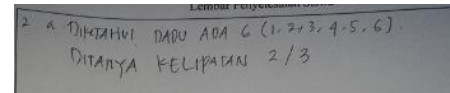 Lembar Penyelesaian
2 a DIKETAHUI DADU ADA 6 (1,2,3,4,5,6).
DITANYA KELIPATAN 2/3